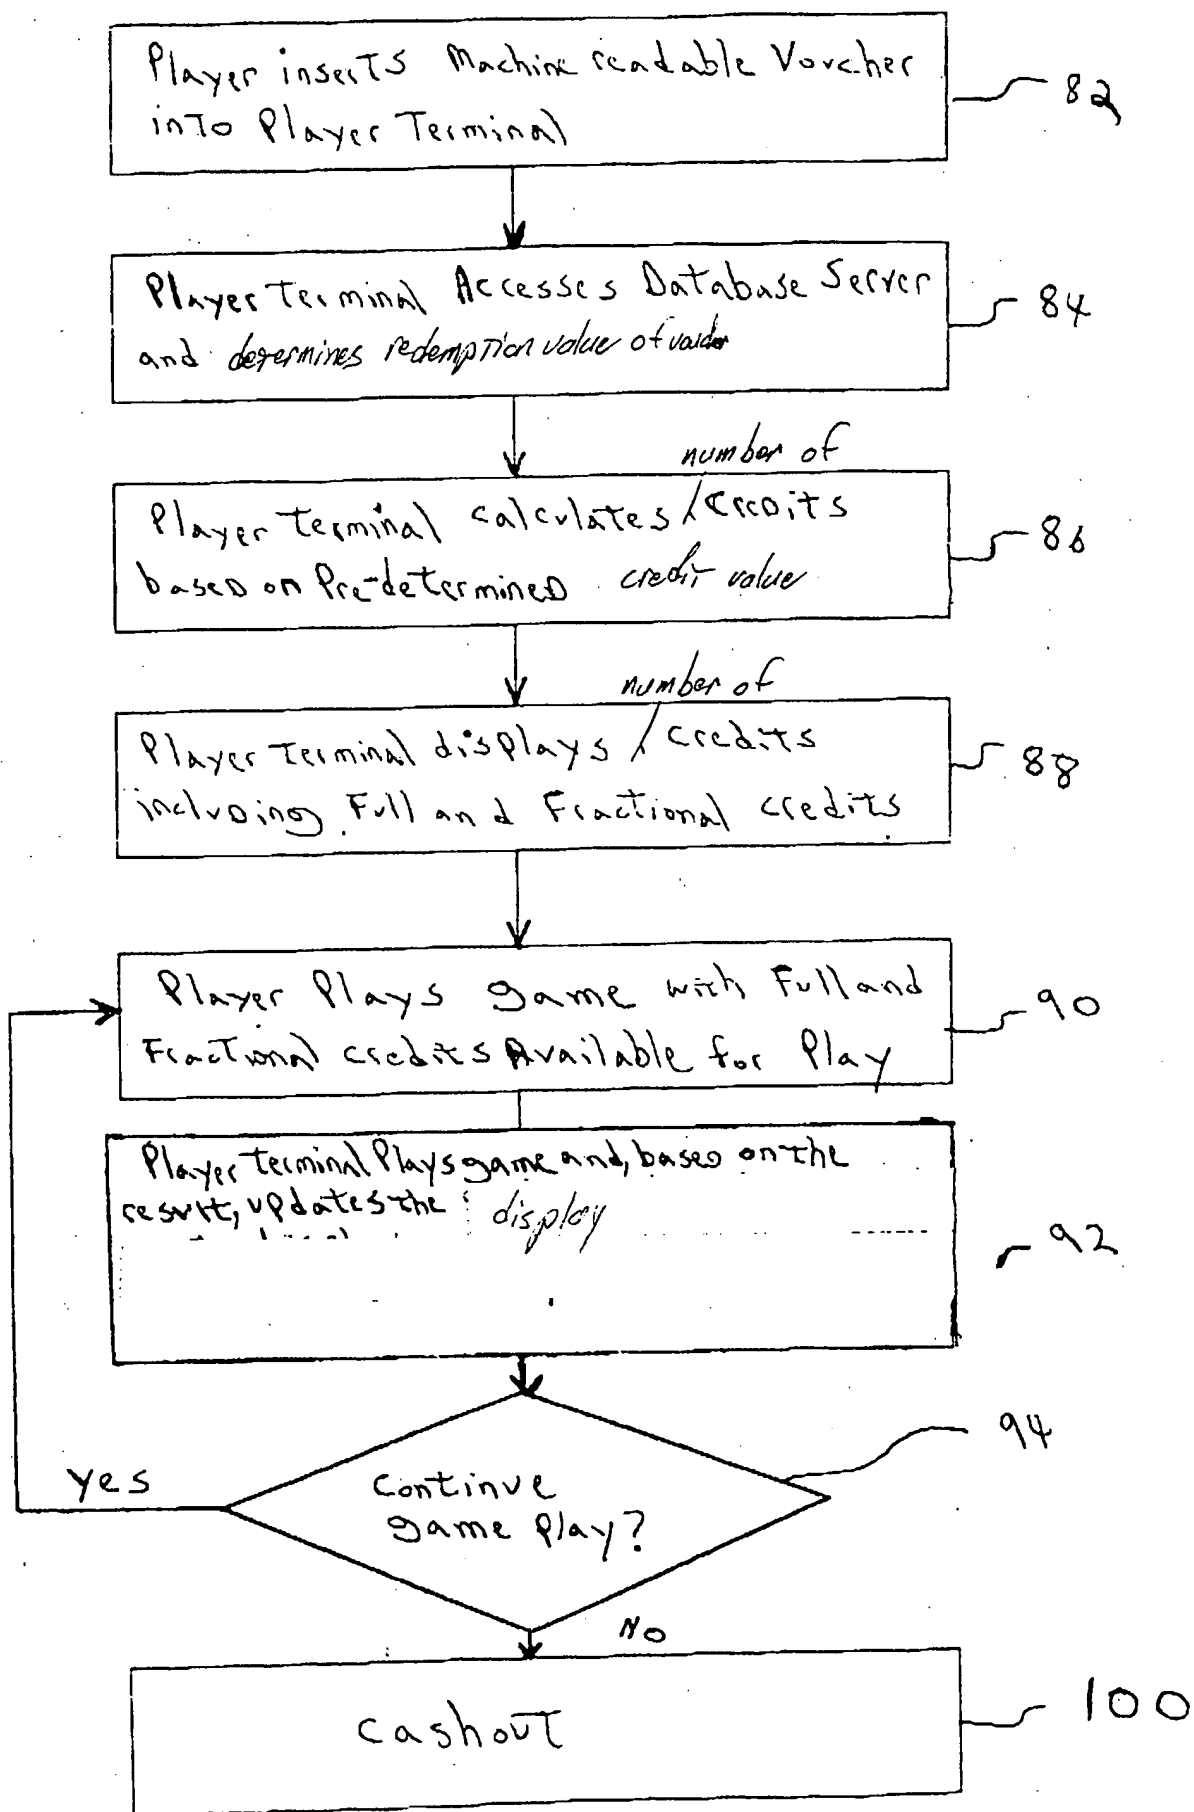 Player inserts Machine readable Voucher
into Player Terminal
82
Player Terminal Accesses Database Server
and determines redemption value of
84
number of
Player Terminal calculates / Credits
based on Pre-determined credit value
86
number of
Player Terminal displays / credits
including Full and Fractional credits
88
Player Plays game with Full and
Fractional credits Available for Play
90
Player Terminal Plays game and, based on the
result, updates the display
92
Continue
game Play?
94
yes
No
Cashout
100